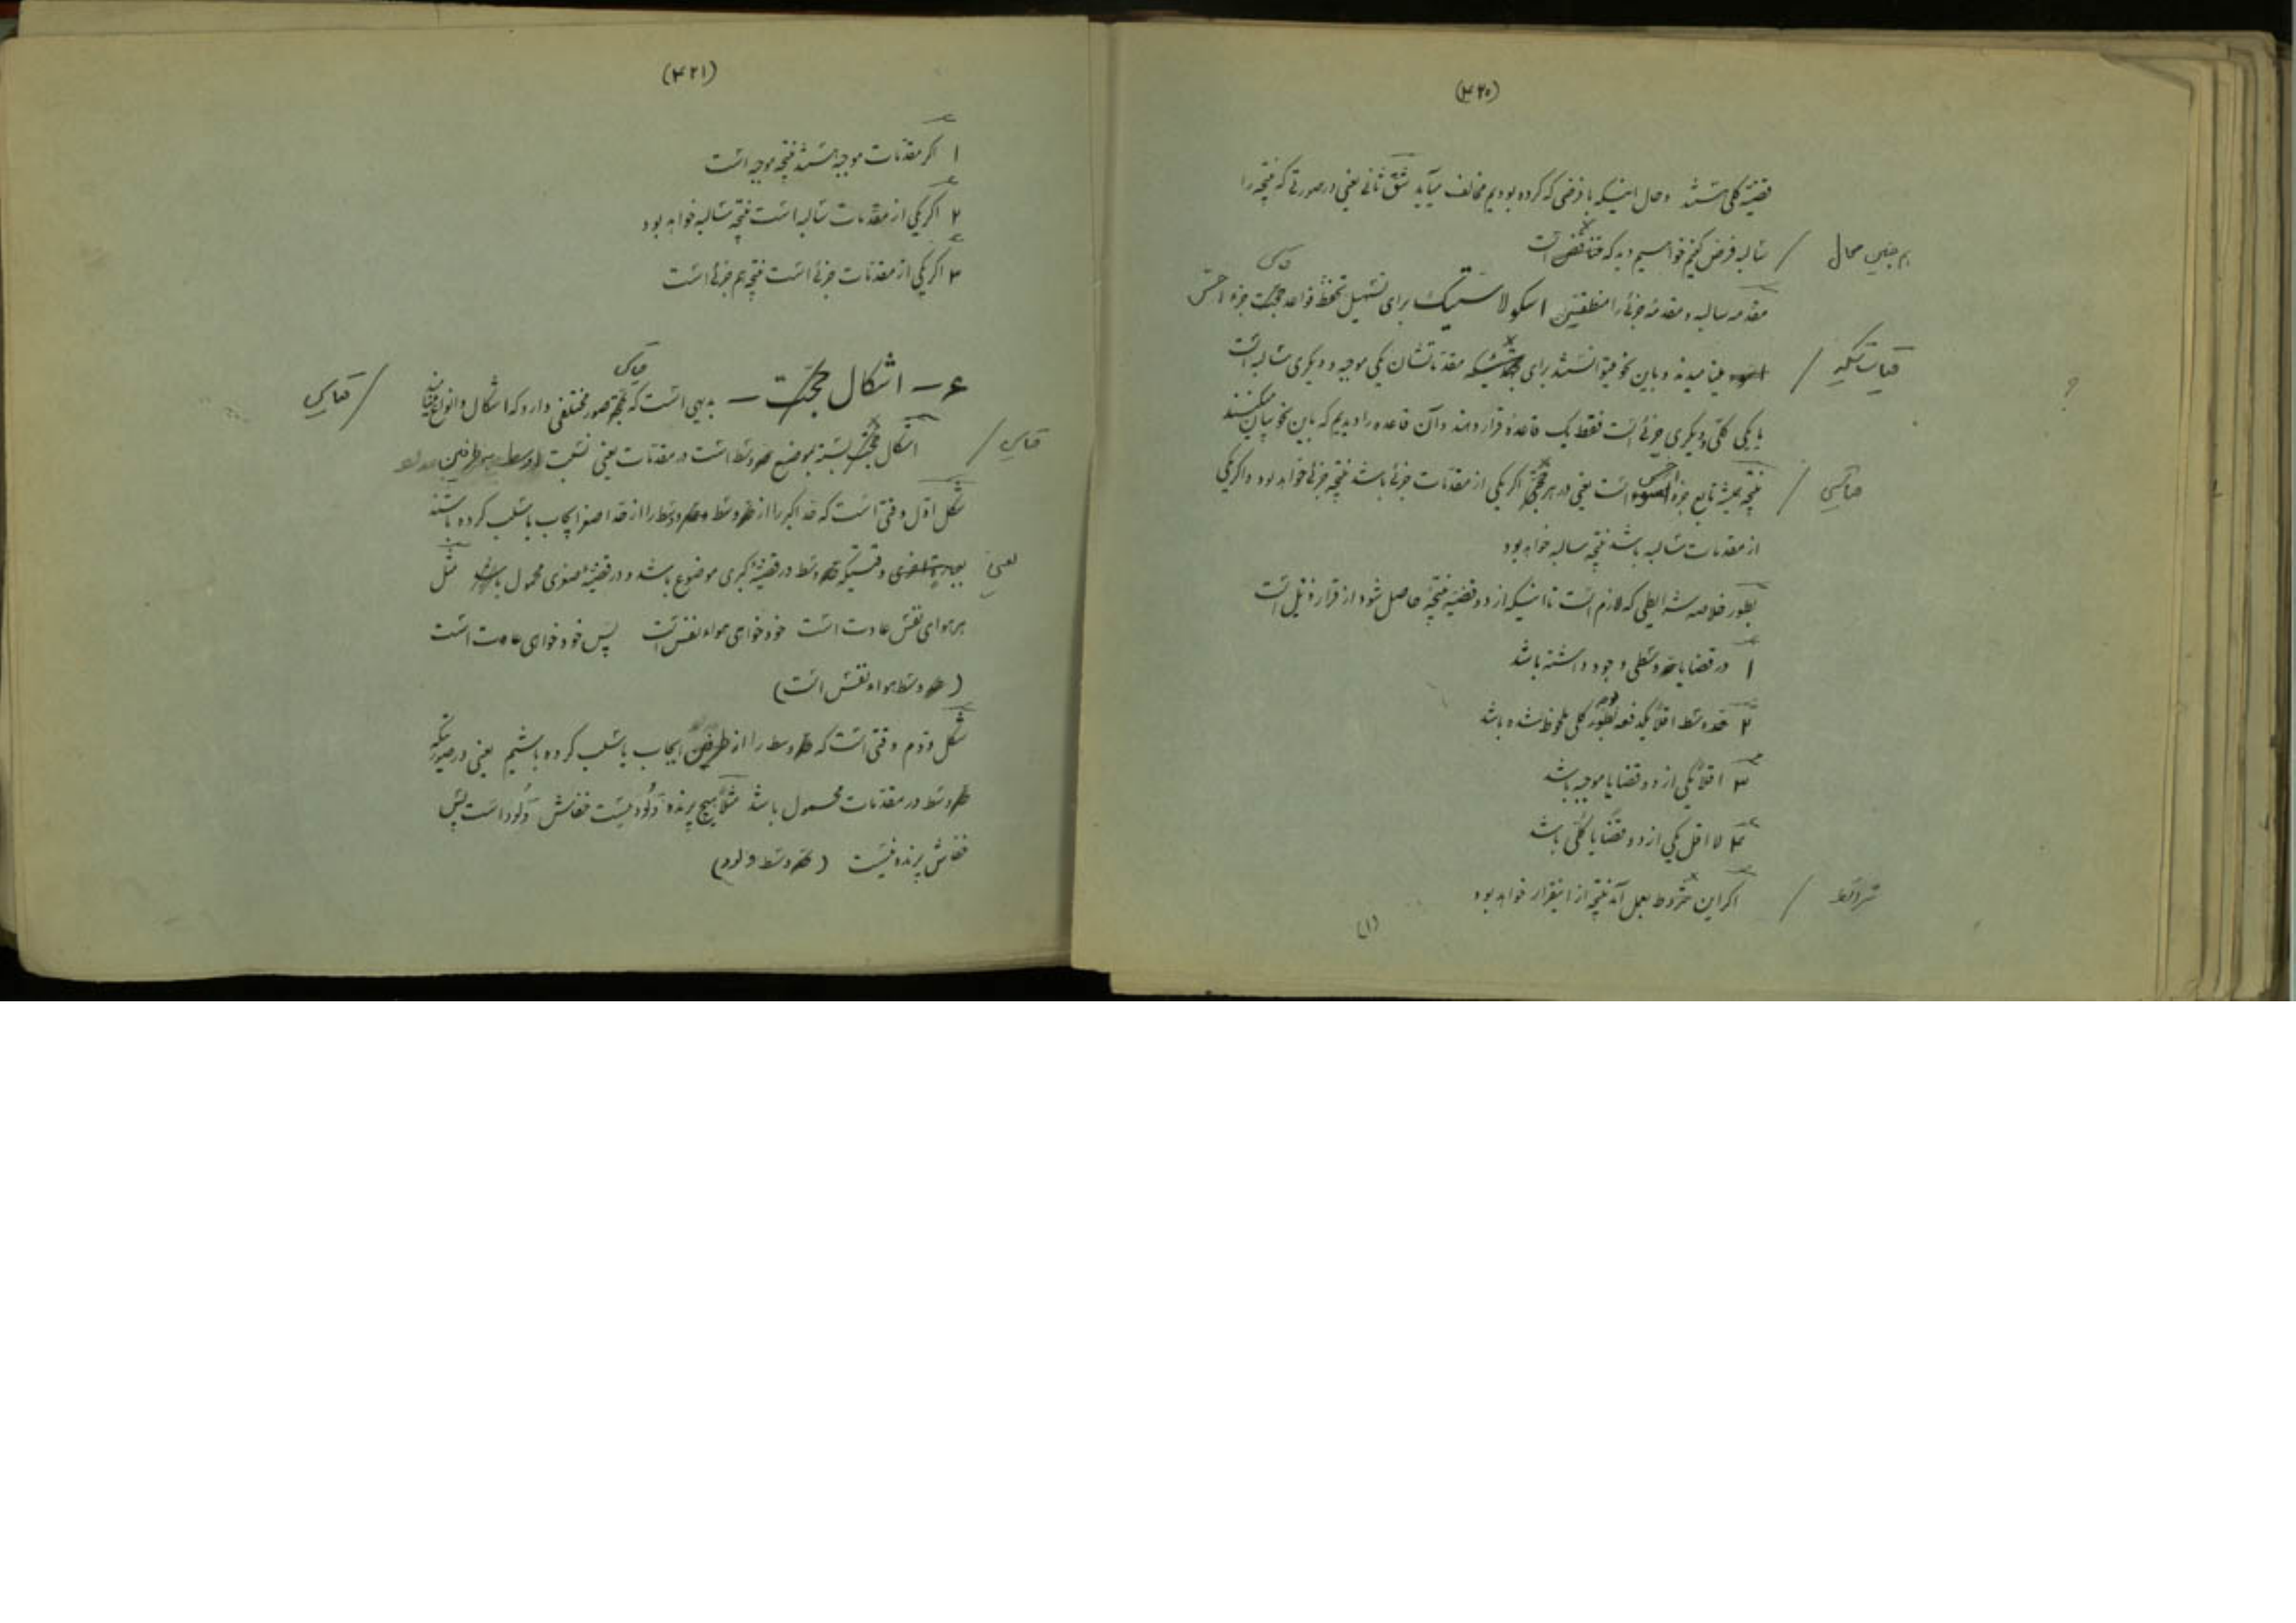 (۴۲۰)
قضیه کلی هستند و حال اینکه با فرضی که کرده بودیم مخالف میآید شق ثانی یعنی در صورتی که نتیجه را
سالبه فرض کنیم خواهیم دید که است
هم چنین محال
مقدمه سالبه و مقدمه جزئی را منطقیین اسکولاستیک برای تسهیل تحفظ قواعد حجت جزء اخس
قیاس
مینامیدند و باین نحو میتوانستند برای مقدماتشان یکی موجبه و دیگری سالبه است
یا یکی کلی و دیگری جزئی است فقط یک قاعده قرار دهند و آن قاعده را دیدیم که باین نحو بیان میکنند
نتیجه همیشه تابع جزء اخس است یعنی در هر اگر یکی از مقدمات جزئی باشد نتیجه جزئی خواهد بود و اگر یکی
قیاسی
از مقدمات سالبه باشد نتیجه سالبه خواهد بود
بطور خلاصه شرایطی که لازم است تا اینکه از دو قضیه نتیجه حاصل شود از قرار ذیل است
۱ در قضایا حد وسطی وجود داشته باشد
۲ حد وسط اقلاً یکدفعه بطور کلی ملحوظ شده باشد
۳ اقلاً یکی از دو قضایا موجبه باشد
۴ لا اقل یکی از دو قضایا کلی باشد
اگر این شروط بعمل آمد نتیجه از اینقرار خواهد بود
شروط
(۱)
(۴۲۱)
۱ اگر مقدمات موجبه هستند نتیجه موجبه است
۲ اگر یکی از مقدمات سالبه است نتیجه سالبه خواهد بود
۳ اگر یکی از مقدمات جزئی است نتیجه هم جزئی است
۶ – اشکال حجت – بدیهی است که صور مختلفی دارد که اشکال و انواع
قیاس
قیاس
اشکال بسته بموضع حد وسط است در مقدمات یعنی نسبت
قیاس
شکل اول وقتی است که حد اکبر را از حد وسط و حد وسط را از حد اصغر ایجاب یا سلب کرده باشند
یعنی وقتیکه حد وسط در قضیه کبری موضوع باشد و در قضیه صغری محمول باشد مثل
هر هوای نفس عادت است خودخواهی هوای نفس است پس خودخواهی عادت است
(حد وسط هواء نفس است)
شکل دوم وقتی است که حد وسط را از طرفین ایجاب یا سلب کرده باشیم یعنی در صورتیکه
حد وسط در مقدمات محمول باشد مثلاً هیچ پرنده ولود نیست خفاش ولود است پس
خفاش پرنده نیست (حد وسط ولود)